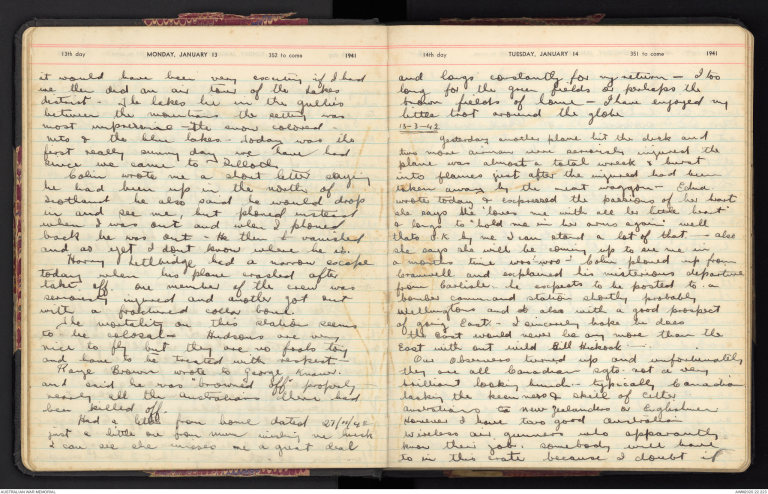 13th day MONDAY, JANUARY 13 352 to come 1941
it would have been very exciting if I had
we then did an air tour of the Lakes
district - The lakes lie in the gullies
between the mountains the setting was
most impressive - the snow colored
mts & the blue lakes - today was the
first really sunny day we have had
since we came to Silloth
Colin wrote me a short letter saying
he had been up in the north of
Scotland he also said he would drop
in and see me, but phoned instead
when I was out and when I phoned
back he was out - He then vanished
and as yet I don't know where he is.
Horry Lethbridge had a narrow escape
today when his plane crashed after
take off. one member of the crew was
seriously injured and another got out
with a fractured collar bone.
The mortality on this station seems
to be colossal - Hudsons are very
nice to fly but they are no fools toy
and have to be treated with respect -
Range Brown wrote to George
and said he was "browned off" properly
nearly all the australians there had
been killed off.
Had a letter from home dated
just a little one from mum wishing me luck
I can see she misses me a great deal
14th day TUESDAY, JANUARY 14 351 to come 1941
and longs constantly for my return - I too
long for the green fields or perhaps the
brown fields of home - I have enjoyed my
little trot around the globe
13-3-42
Yesterday another plane hit the deck and
two more airmen were seriously injured the
plane was almost a total wreck & burst
into flames just after the injured had been
taken away by the meat waggon - Edna
wrote today & expressed the passions of her heart
she says she "loves me with all her little heart"
& longs to "hold me in her arms again" well
thats O.K by me I can stand a lot of that - also
she says she will be coming up to see me in
a months time "woo-woo" - Colin phoned up from
Cranwell and explained his misterious departure
from Carlisle. he expects to be posted to a
bomber command station shortly probably
Wellingtons and also with a good prospect
of going East - I sincerely hope he does
The East would never be any more than the
East with out wild Bill Hickock -
Our observers turned up and unfortunately
they are all Canadian sgts - not a very
brilliant looking bunch - typically Canadian
lacking the keenness & skill of either
australians or New Zealanders or Englishmen
However I have two good australian
wireless air gunners who apparently
know their job; somebody will have
to in this crate because I doubt if
AUSTRALIAN WAR MEMORIAL